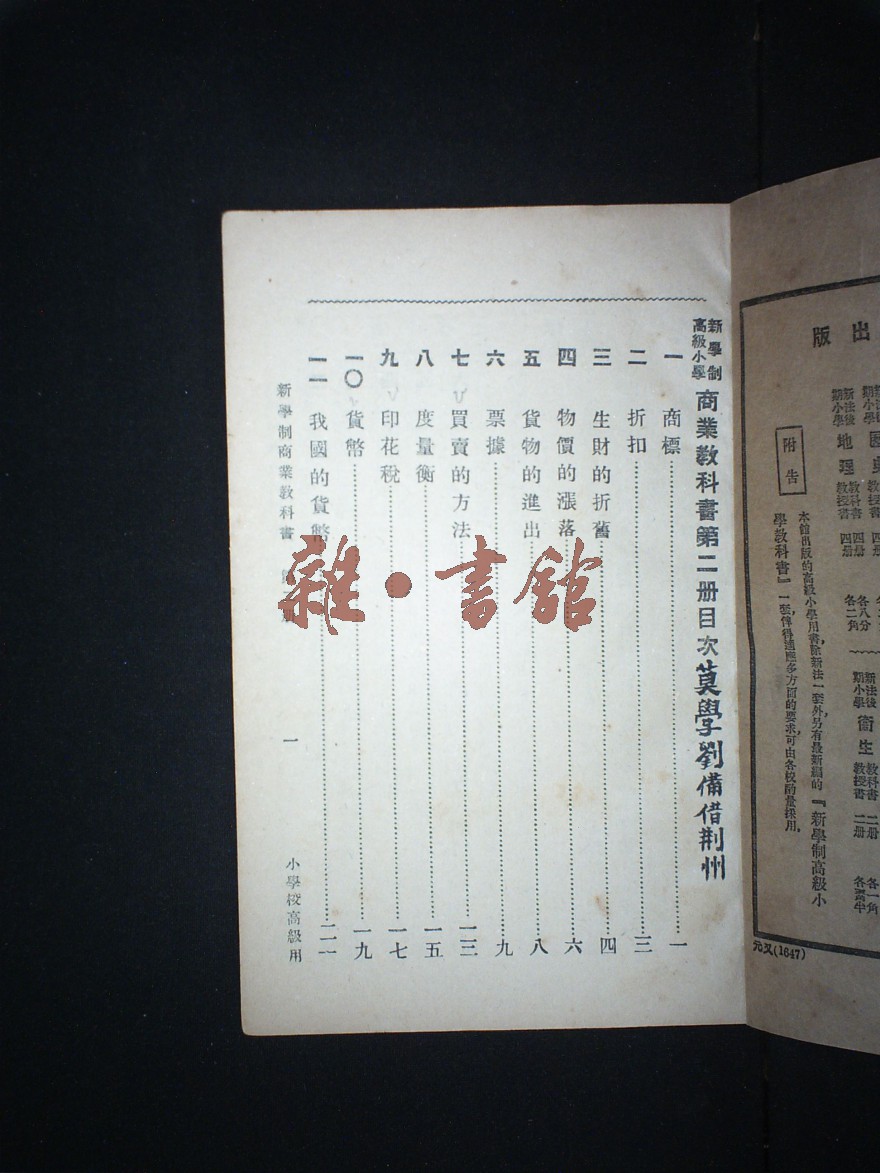 出版
附告
本館出版的高級小學用書,除新法一套外,另有最新編的『新學制高級小
學教科書』一套,俾得適應多方面的要求,可由各校酌量採用,
新法後期小學 地理 教科書 四册 各八分
教授書 四册 各二角
新法後期小學 衞生 教科書 二册 各一角
教授書 二册
元又(1647)
新學制高級小學 商業教科書第二册目次
莫學劉備借荆州
一 商標 一
二 折扣 三
三 生財的折舊 四
四 物價的漲落 六
五 貨物的進出 八
六 票據 九
七 買賣的方法 一三
八 度量衡 一五
九 印花稅 一七
一〇 貨幣 一九
一一 我國的貨幣 二一
新學制商業教科書 一 小學校高級用
雜·書館